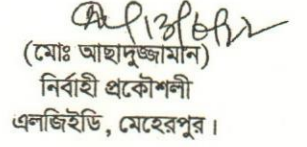 (মোঃ আছাদুজ্জামান)
নির্বাহী প্রকৌশলী
এলজিইডি, মেহেরপুর।